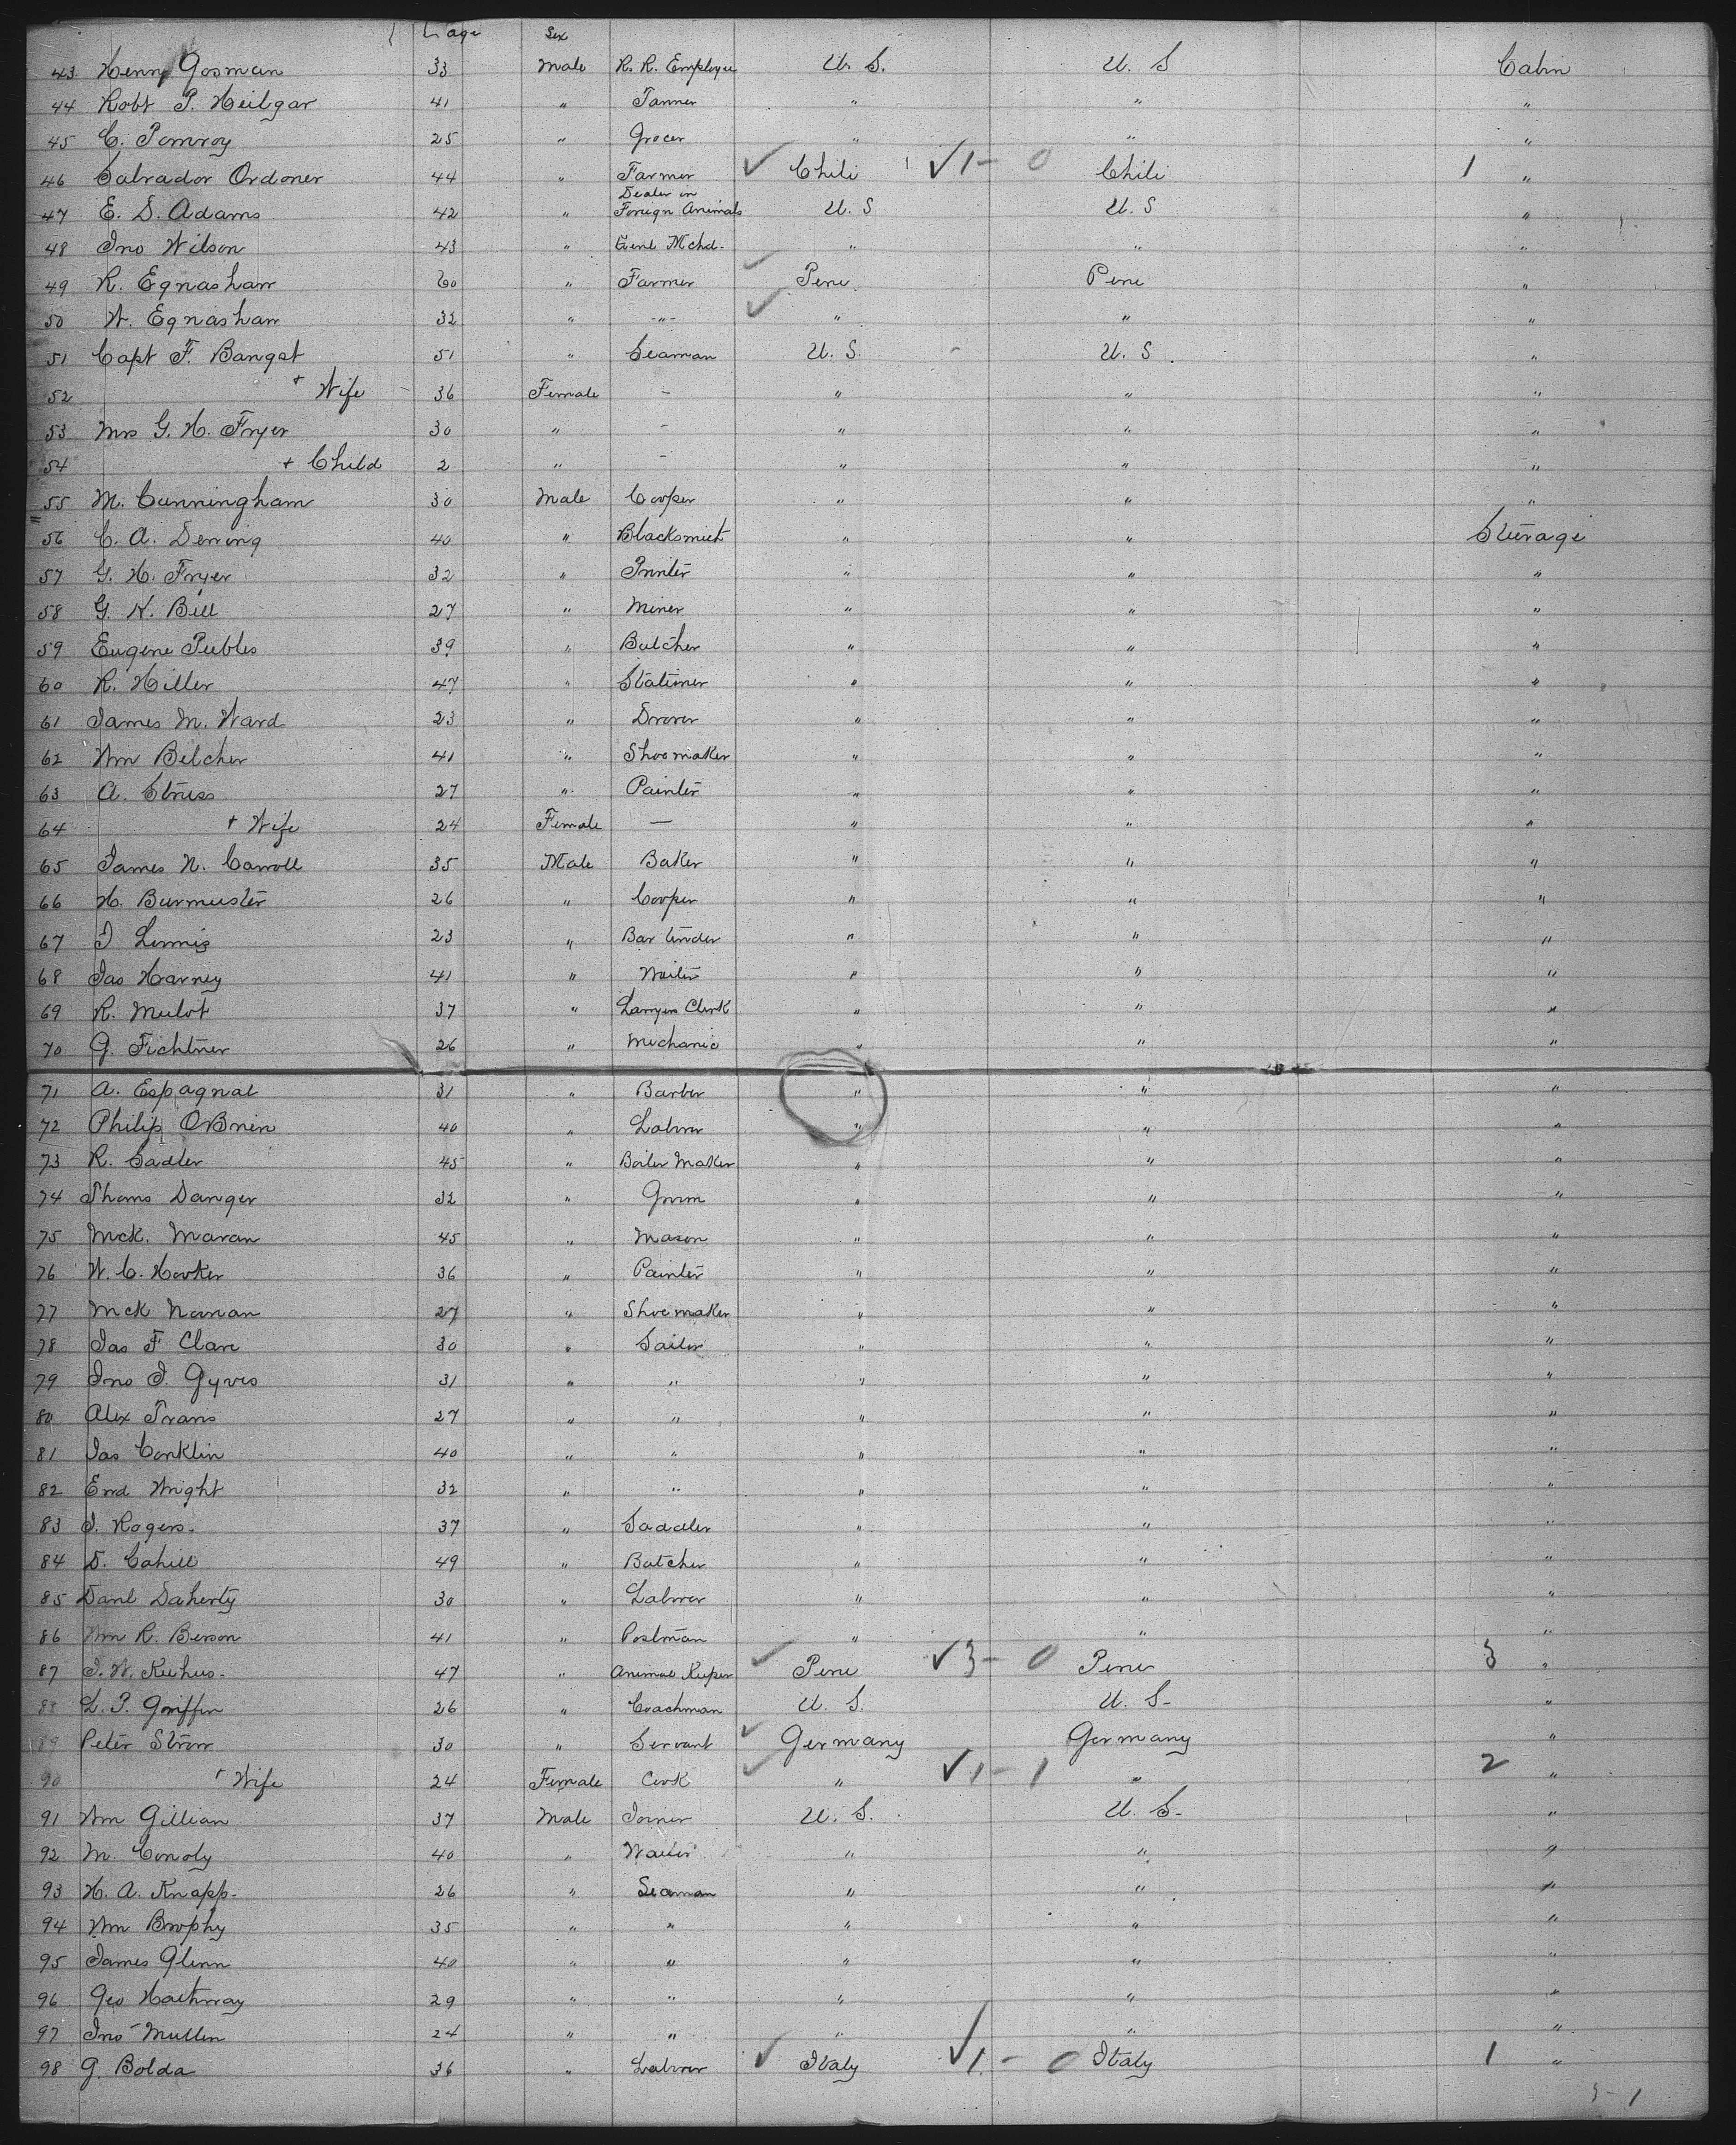 Age Sex
43 Henry Gosman 33 Male R. R. Employee U. S. U. S Cabin
44 Robt P. Heiligar 41 " Tanner " " "
45 C. Pomroy 25 " Grocer " " "
46 Salvador Ordoner 44 " Farmer ✓ Chili ✓ 1 - 0 Chili 1 "
47 E. S. Adams 42 " Dealer in Foreign Animals U. S U. S "
48 Jno Wilson 43 " Genl Mchd. " " "
49 R. Egnashan 60 " Farmer ✓ Peru Peru "
50 W. Egnashan 32 " -"- ✓ " " "
51 Capt F. Bangat 51 " Seaman U. S. - U. S. "
52 + Wife 36 Female - " " "
53 Mrs G. H. Fryer 30 " - " " "
54 + Child 2 " - " " "
55 M. Cunningham 30 Male Cooper " " "
56 C. A. Dening 40 " Blacksmith " " Steerage
57 G. H. Fryer 32 " Printer " " "
58 G. K. Bell 27 " Miner " " "
59 Eugene Peebles 39 " Butcher " " "
60 R. Hiller 47 " Stationer " " "
61 James M. Ward 23 " Drover " " "
62 Wm Belcher 41 " Shoemaker " " "
63 A. Struss 27 " Painter " " "
64 + Wife 24 Female — " " "
65 James N. Carroll 35 Male Baker " " "
66 H. Burmuster 26 " Cooper " " "
67 J Lemis 23 " Bar tender " " "
68 Jas Harney 41 " Waiter " " "
69 R. Mulot 37 " Lawyers Clerk " " "
70 G. Fichtner 26 " Mechanic " " "
71 A. Espagnat 31 " Barber " " "
72 Philip OBrien 40 " Laborer " " "
73 R. Sadler 45 " Boiler Maker " " "
74 Thoms Danger 32 " Groom " " "
75 Mck. Maran 45 " Mason " " "
76 W. C. Hooker 36 " Painter " " "
77 Mck Noonan 27 " Shoemaker " " "
78 Jas F Clare 30 " Sailor " " "
79 Jno J. Gyves 31 " " " " "
80 Alex Frans 27 " " " " "
81 Jas Conklin 40 " " " " "
82 Erid Wright 32 " " " " "
83 J. Rogers. 37 " Saddler " " "
84 D. Cahill 49 " Butcher " " "
85 Danl Daherty 30 " Laborer " " "
86 Wm R. Benson 41 " Postman " " "
87 J. W. Keehus. 47 " Animal Keeper ✓ Peru ✓ 3 - 0 Peru 3 "
88 L. P. Griffin 26 " Coachman U. S. U. S- "
89 Peter Storr 30 " Servant ✓ Germany Germany "
90 + Wife 24 Female Cook ✓ " ✓ 1 - 1 " 2 "
91 Wm Gillian 37 Male Joiner U. S. U. S- "
92 M. Conoly 40 " Waiter " " "
93 H. A. Knapp. 26 " Seaman " " "
94 Wm Brophy 35 " " " " "
95 James Glenn 40 " " " " "
96 Geo Hathway 29 " " " " "
97 Jno Mullen 24 " " " " "
98 G. Bolda 36 " Laborer ✓ Italy ✓ 1. - 0 Italy 1 "
5 - 1